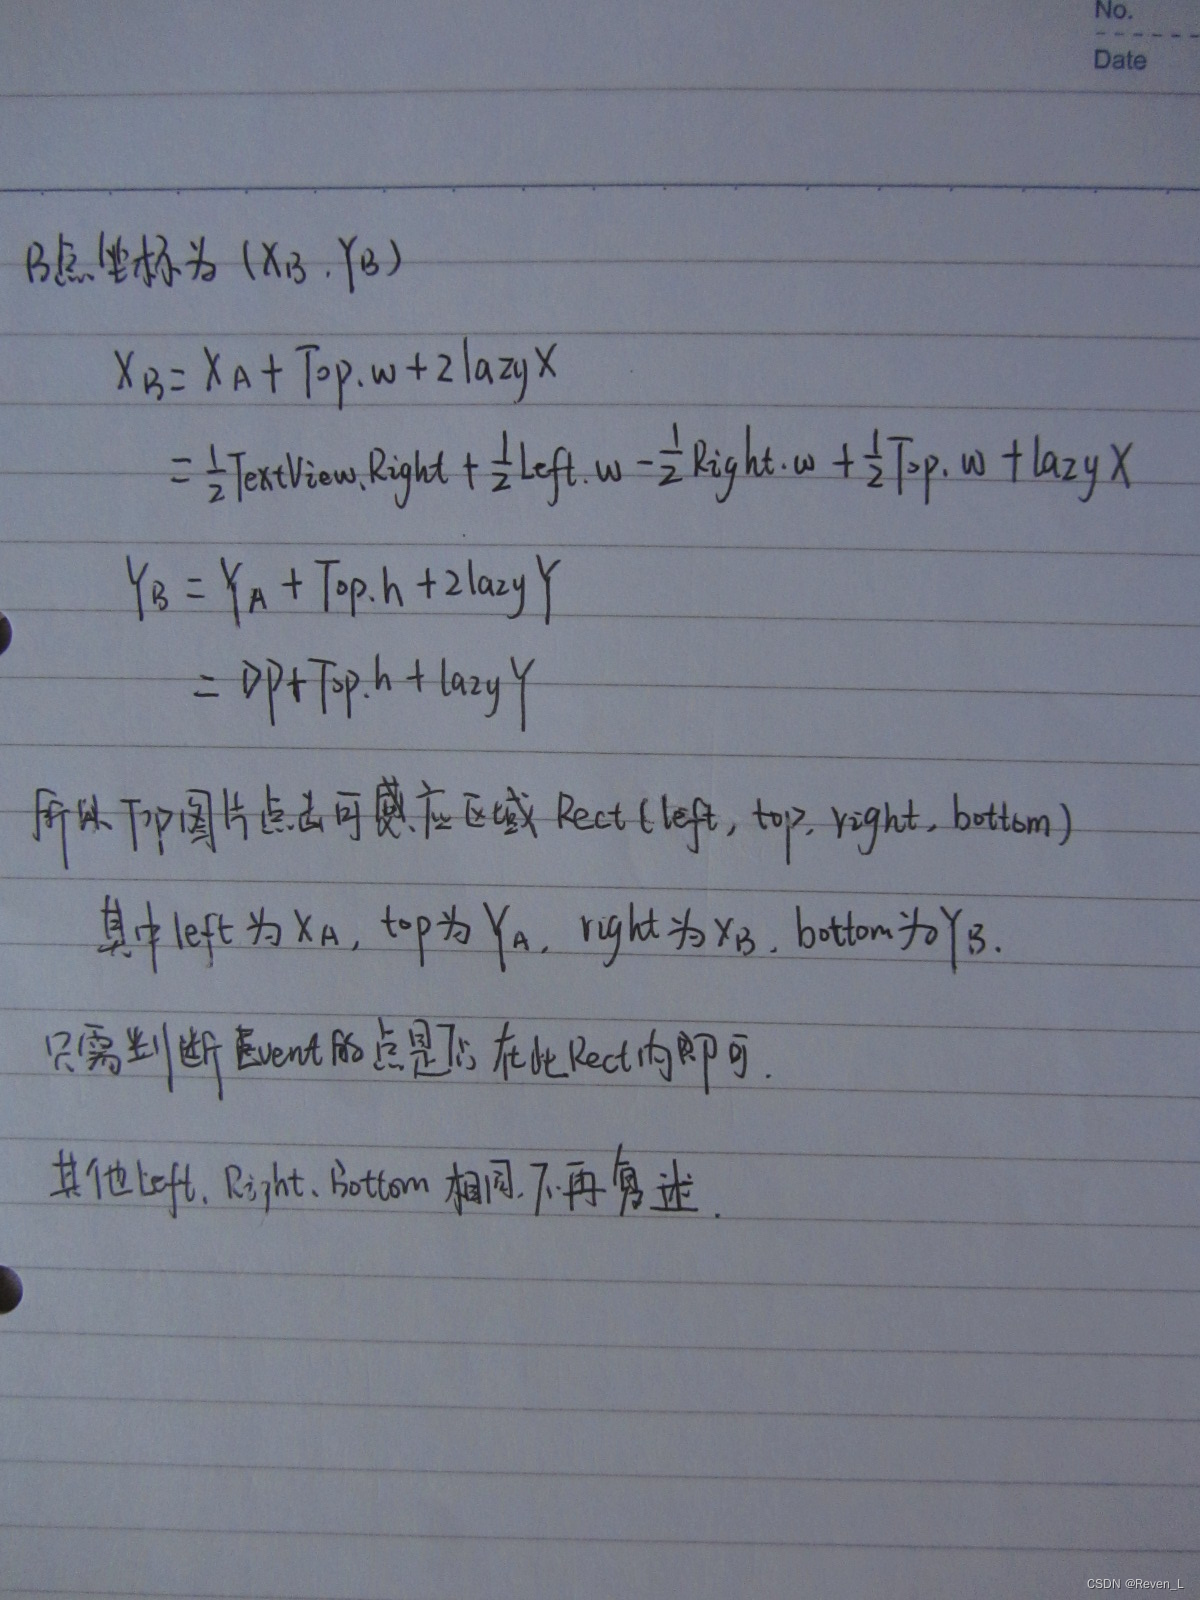 No.
Date
B点坐标为 (XB, YB)
XB = XA + Top.w + 2lazyX
= 1/2 TextView.Right + 1/2 Left.w - 1/2 Right.w + 1/2 Top.w + lazyX
YB = YA + Top.h + 2lazyY
= DP + Top.h + lazyY
所以 Top图片点击可感应区域 Rect (left, top, right, bottom)
其中left为XA, top为YA, right为XB, bottom为YB.
只需判断Event的点是否在此Rect内即可.
其他Left、Right、Bottom相同, 不再复述.
CSDN @Reven_L